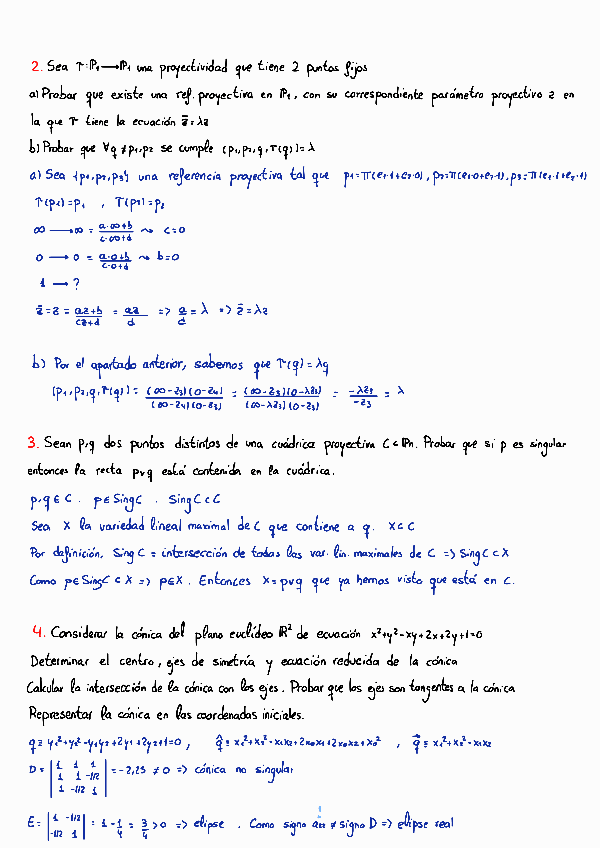 2. Sea τ: P₁ → P₁ una proyectividad que tiene 2 puntos fijos
a) Probar que existe una ref. proyectiva en P₁, con su correspondiente parámetro proyectivo z en
la que τ tiene la ecuación z̄ = λz
b) Probar que ∀q ≠ p₁, p₂ se cumple [p₁, p₂, q, τ(q)] = λ
a) Sea {p₁, p₂, p₃} una referencia proyectiva tal que p₁ = π(e₁·1+e₂·0), p₂ = π(e₁·0+e₂·1), p₃ = π(e₁·1+e₂·1)
τ(p₁) = p₁ , τ(p₂) = p₂
∞ → ∞ = (a·∞+b)/(c·∞+d) ⇝ c=0
0 → 0 = (a·0+b)/(c·0+d) ⇝ b=0
1 → ?
z̄ = z = (az+b)/(cz+d) = az/d => a/d = λ => z̄ = λz
b) Por el apartado anterior, sabemos que τ(q) = λq
[p₁, p₂, q, τ(q)] = (∞-z₃)(0-z₄)/(∞-z₄)(0-z₃) = (∞-z₃)(0-λz₃)/(∞-λz₃)(0-z₃) = -λz₃/-z₃ = λ
3. Sean p, q dos puntos distintos de una cuádrica proyectiva C ⊂ Pn. Probar que si p es singular
entonces la recta p∨q está contenida en la cuádrica.
p, q ∈ C . p ∈ Sing C . Sing C ⊂ C
Sea X la variedad lineal maximal de C que contiene a q. X ⊂ C
Por definición, Sing C = intersección de todas las var. lin. maximales de C => Sing C ⊂ X
Como p ∈ Sing C ⊂ X => p ∈ X . Entonces X = p∨q que ya hemos visto que está en C.
4. Considerar la cónica del plano euclídeo ℝ² de ecuación x²+y²-xy+2x+2y+1=0
Determinar el centro, ejes de simetría y ecuación reducida de la cónica
Calcular la intersección de la cónica con los ejes. Probar que los ejes son tangentes a la cónica
Representar la cónica en las coordenadas iniciales.
q ≡ y₁²+y₂²-y₁y₂+2y₁+2y₂+1=0 , q̂ ≡ x₁²+x₂²-x₁x₂+2x₀x₁+2x₀x₂+x₀² , q⃗ ≡ x₁²+x₂²-x₁x₂
D = |1 1 1; 1 1 -1/2; 1 -1/2 1| = -2,25 ≠ 0 => cónica no singular
E = |1 -1/2; -1/2 1| = 1 - 1/4 = 3/4 > 0 => elipse . Como signo a₂₂ ≠ signo D => elipse real